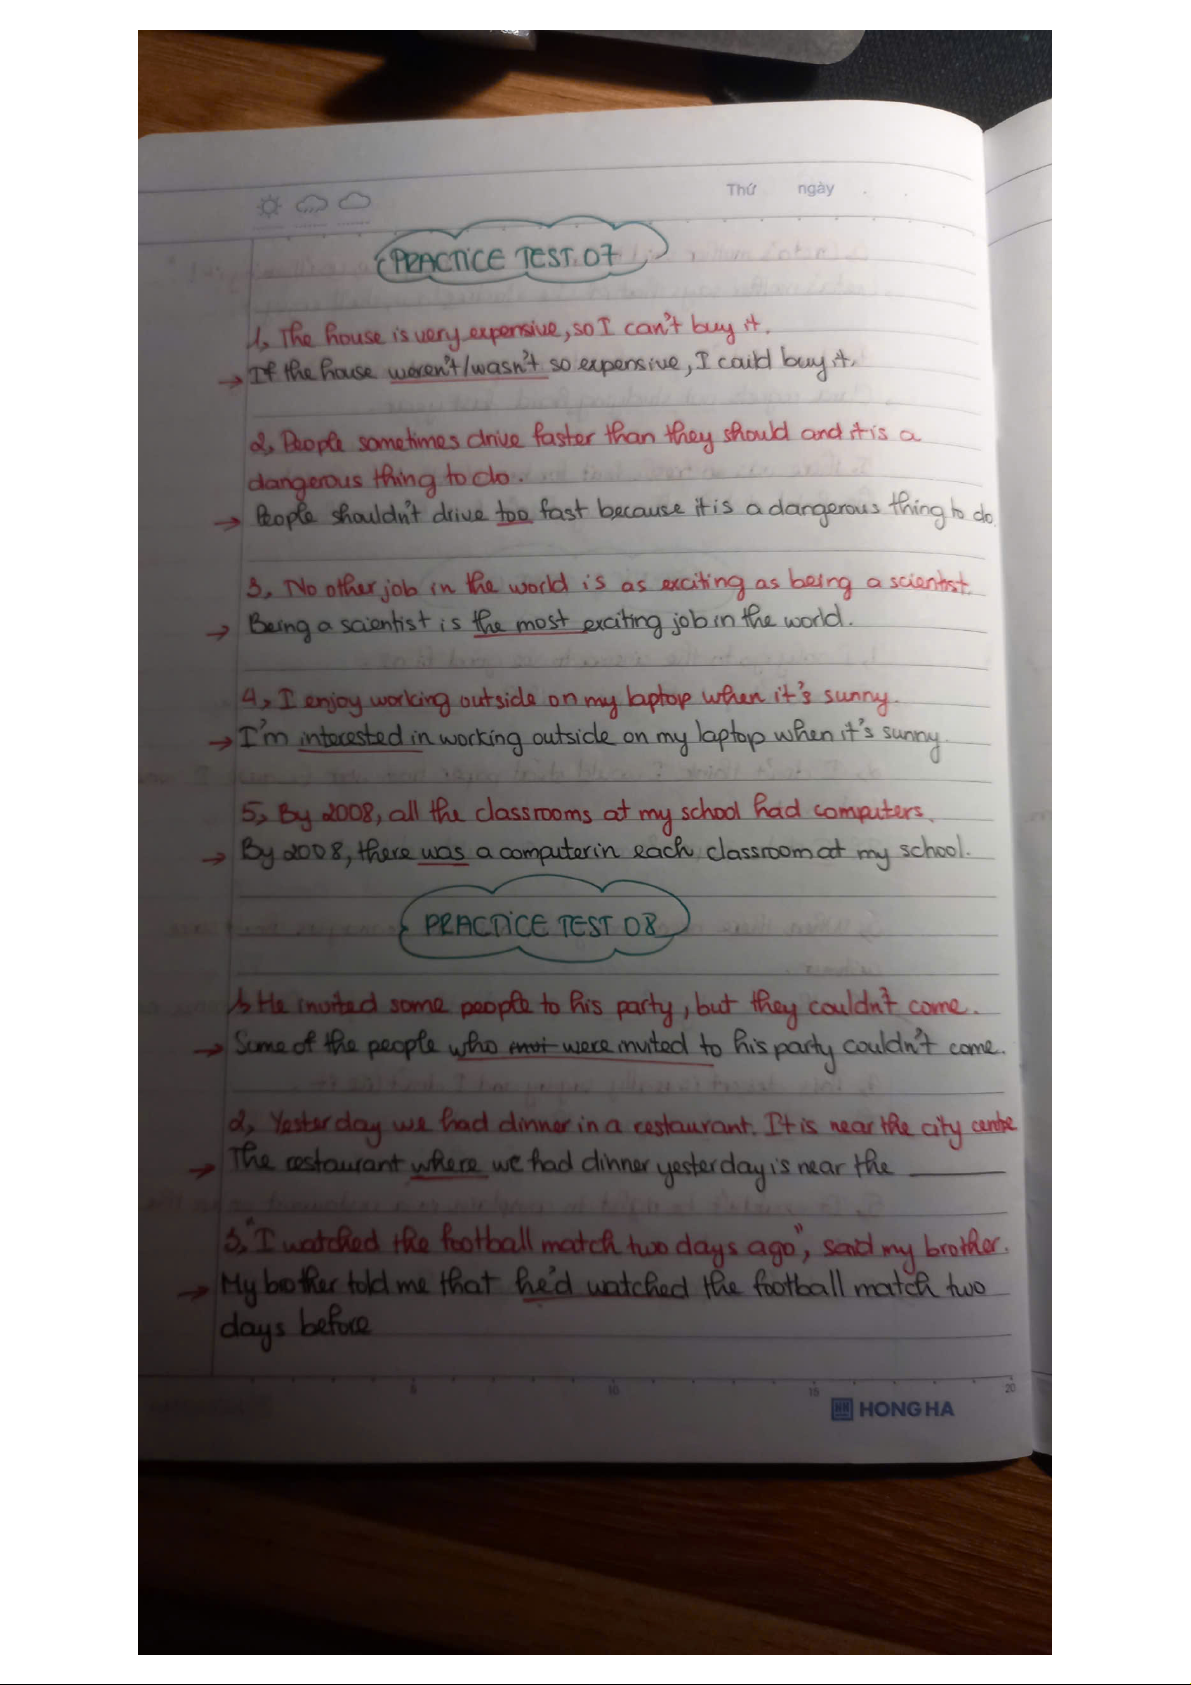 Thứ ngày
PRACTICE TEST 07
1, The house is very expensive, so I can't buy it.
→ If the house weren't/wasn't so expensive, I could buy it.
2, People sometimes drive faster than they should and it is a
dangerous thing to do.
→ People shouldn't drive too fast because it is a dangerous thing to do.
3, No other job in the world is as exciting as being a scientist.
→ Being a scientist is the most exciting job in the world.
4, I enjoy working outside on my laptop when it's sunny.
→ I'm interested in working outside on my laptop when it's sunny.
5, By 2008, all the classrooms at my school had computers.
→ By 2008, there was a computer in each classroom at my school.
PRACTICE TEST 08
1, He invited some people to his party, but they couldn't come.
→ Some of the people who were invited to his party couldn't come.
2, Yesterday we had dinner in a restaurant. It is near the city centre
→ The restaurant where we had dinner yesterday is near the ______
3, "I watched the football match two days ago", said my brother.
→ My brother told me that he'd watched the football match two
days before
5 10 15 20
HONG HA